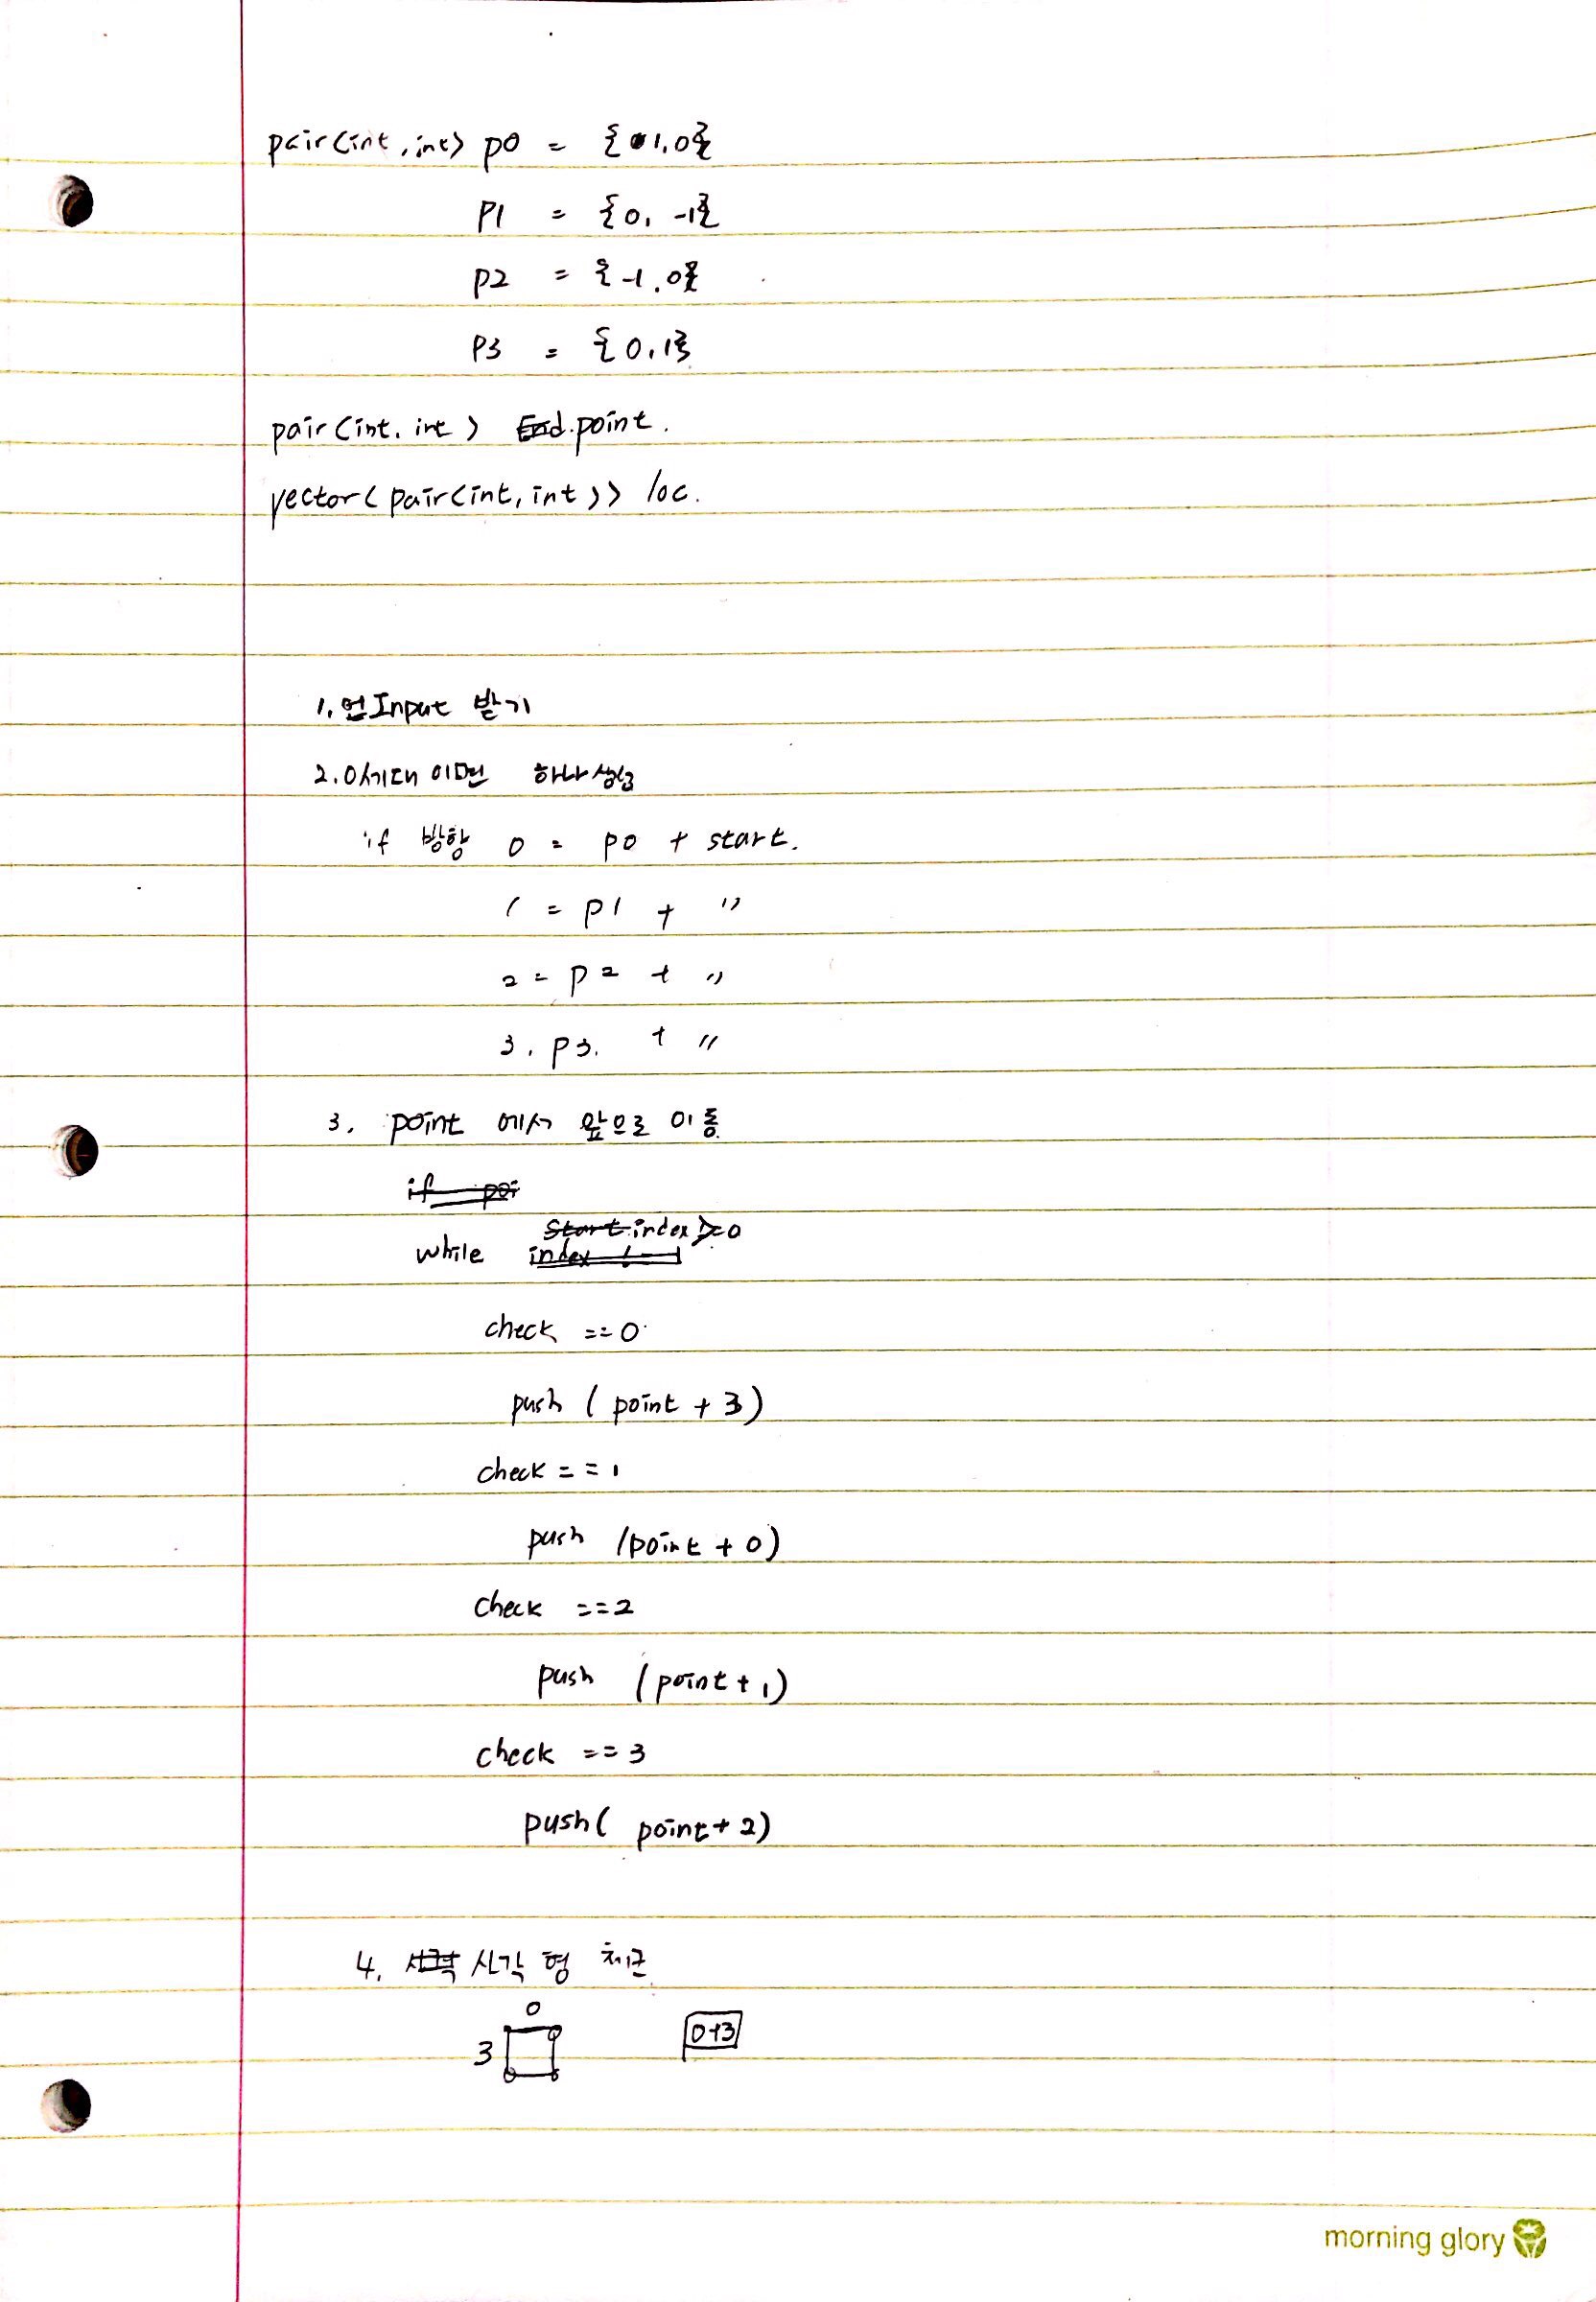 pair<int, int> p0 = {1, 0}
p1 = {0, -1}
p2 = {-1, 0}
p3 = {0, 1}
pair<int, int> End point.
vector<pair<int, int>> loc.
1. Input 받기
2. 0세대 이면 하나 생성
if 방향 0 = p0 + start.
1 = p1 + "
2 = p2 + "
3. p3. + "
3. point 에서 앞으로 이동
if poi
Start index >= 0
while index
check == 0
push (point + 3)
check == 1
push (point + 0)
check == 2
push (point + 1)
check == 3
push (point + 2)
4. 사각형 체크
0
3
0+3
morning glory